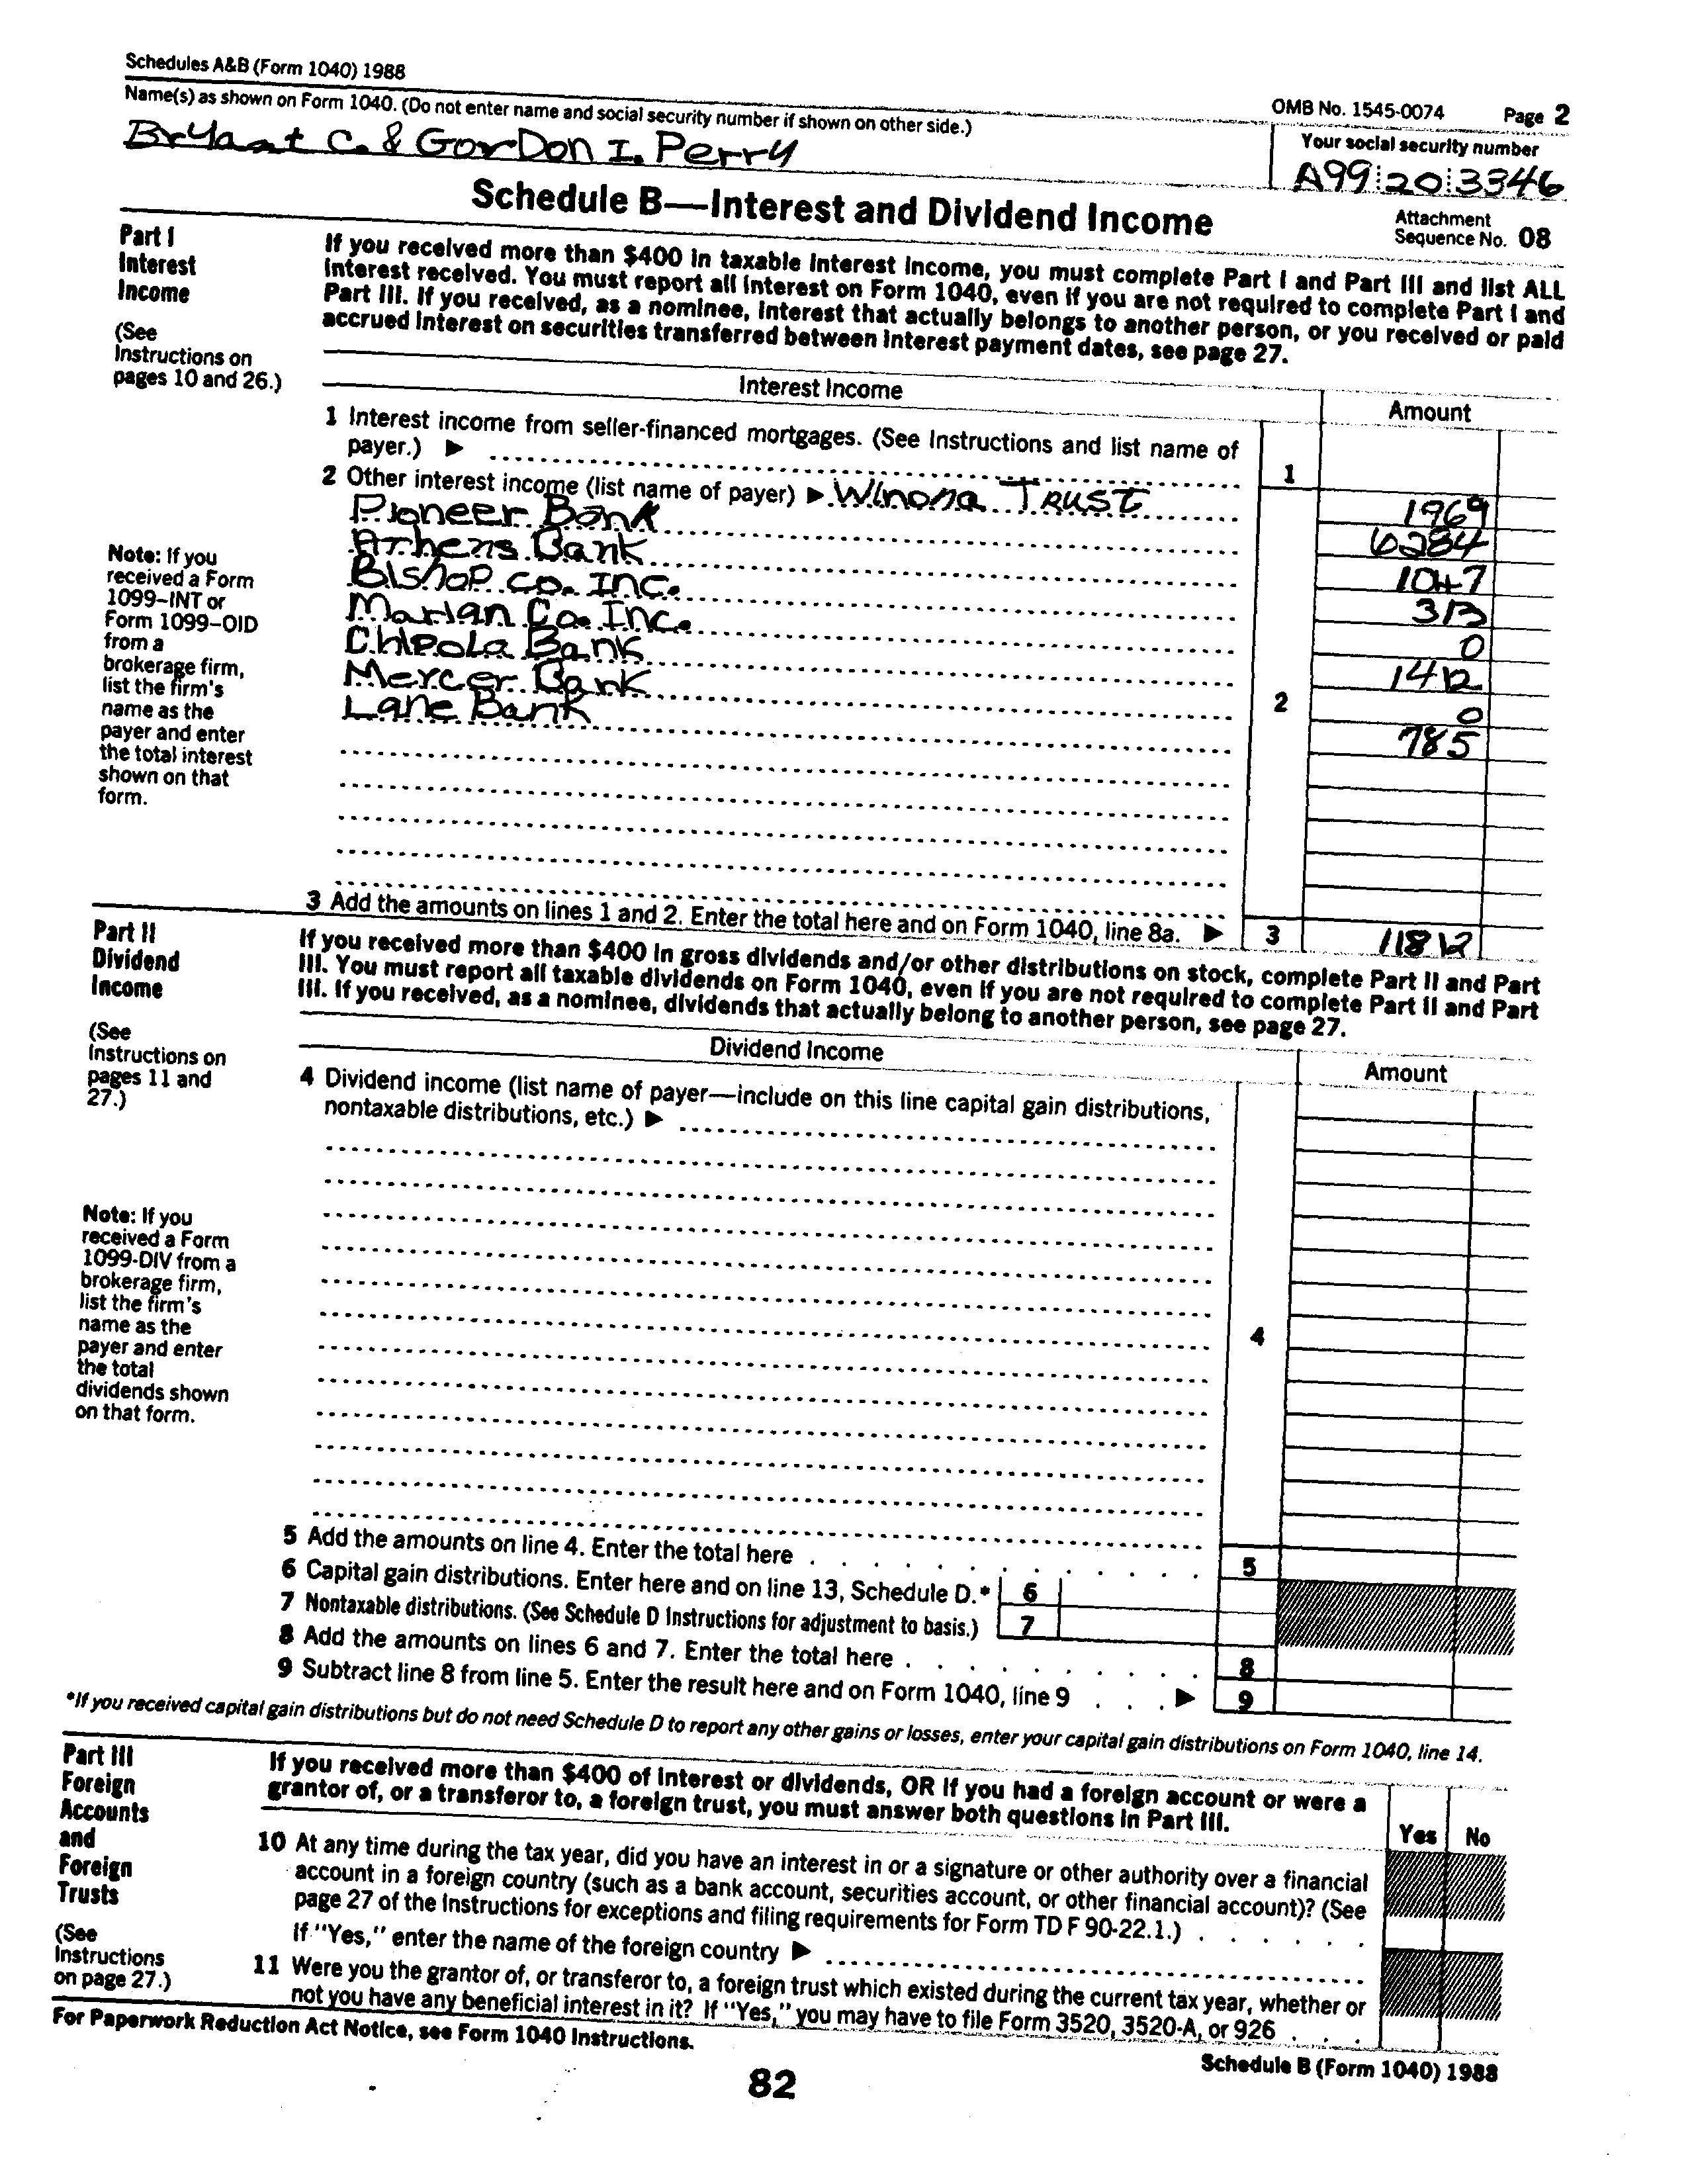 Schedules A&B (Form 1040) 1988
OMB No. 1545-0074 Page 2
Name(s) as shown on Form 1040. (Do not enter name and social security number if shown on other side.)
Your social security number
Bryant C. & GorDon I. Perry
A99 20 3346
Schedule B—Interest and Dividend Income
Attachment
Sequence No. 08
Part I
Interest
Income
(See
Instructions on
pages 10 and 26.)
If you received more than $400 in taxable interest income, you must complete Part I and Part III and list ALL
interest received. You must report all interest on Form 1040, even if you are not required to complete Part I and
Part III. If you received, as a nominee, interest that actually belongs to another person, or you received or paid
accrued interest on securities transferred between interest payment dates, see page 27.
Interest Income
Amount
1 Interest income from seller-financed mortgages. (See Instructions and list name of
payer.) ▶
1
2 Other interest income (list name of payer) ▶ Winona Trust 1969
Pioneer Bank 6284
Athens Bank 1047
Bishop co. Inc. 313
Marian Co. Inc. 0
Chipola Bank 1412
Mercer Bank 0
Lane Bank 785
2
Note: If you
received a Form
1099–INT or
Form 1099–OID
from a
brokerage firm,
list the firm's
name as the
payer and enter
the total interest
shown on that
form.
3 Add the amounts on lines 1 and 2. Enter the total here and on Form 1040, line 8a. ▶ 3 11812
Part II
Dividend
Income
(See
Instructions on
pages 11 and
27.)
If you received more than $400 in gross dividends and/or other distributions on stock, complete Part II and Part
III. You must report all taxable dividends on Form 1040, even if you are not required to complete Part II and Part
III. If you received, as a nominee, dividends that actually belong to another person, see page 27.
Dividend Income
Amount
4 Dividend income (list name of payer—include on this line capital gain distributions,
nontaxable distributions, etc.) ▶
4
Note: If you
received a Form
1099-DIV from a
brokerage firm,
list the firm's
name as the
payer and enter
the total
dividends shown
on that form.
5 Add the amounts on line 4. Enter the total here 5
6 Capital gain distributions. Enter here and on line 13, Schedule D.* 6
7 Nontaxable distributions. (See Schedule D Instructions for adjustment to basis.) 7
8 Add the amounts on lines 6 and 7. Enter the total here 8
9 Subtract line 8 from line 5. Enter the result here and on Form 1040, line 9 ▶ 9
*If you received capital gain distributions but do not need Schedule D to report any other gains or losses, enter your capital gain distributions on Form 1040, line 14.
Part III
Foreign
Accounts
and
Foreign
Trusts
(See
Instructions
on page 27.)
If you received more than $400 of interest or dividends, OR if you had a foreign account or were a
grantor of, or a transferor to, a foreign trust, you must answer both questions in Part III.
Yes No
10 At any time during the tax year, did you have an interest in or a signature or other authority over a financial
account in a foreign country (such as a bank account, securities account, or other financial account)? (See
page 27 of the Instructions for exceptions and filing requirements for Form TD F 90-22.1.)
If "Yes," enter the name of the foreign country ▶
11 Were you the grantor of, or transferor to, a foreign trust which existed during the current tax year, whether or
not you have any beneficial interest in it? If "Yes," you may have to file Form 3520, 3520-A, or 926
For Paperwork Reduction Act Notice, see Form 1040 Instructions.
Schedule B (Form 1040) 1988
82